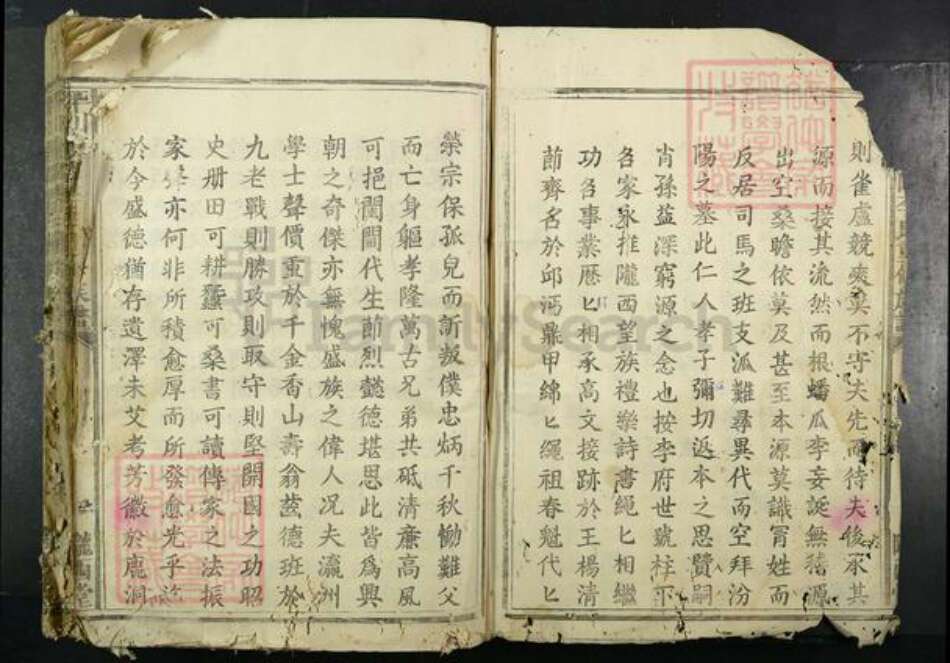 則雀盧競爽莫不守夫先而待夫後承其
源而接其流然而根蟠瓜李妄誕無稽原
出空桑瞻依莫及甚至本源莫識冐姓而
反居司馬之班支派難尋異代而空拜汾
陽之墓此仁人孝子彌切返本之思賢嗣
肖孫益深窮源之念也按李府世號柱下
名家永推隴西望族禮樂詩書繩匕相繼
功名事業厯匕相承高文接跡於王楊清
節齊名於邱沔鼎甲綿匕繩祖春魁代匕
榮宗保孤兒而訴叛僕忠炳千秋慟難父
而亡身軀孝隆萬古兄弟共砥清亷高風
可挹閨閫代生節烈懿德堪思此皆爲興
朝之奇傑亦無愧盛族之偉人况夫瀛洲
學士聲價重於千金香山壽翁莪德班於
九老戰則勝攻則取守則堅開國之功昭
史册田可耕蠶可桑書可讀傳家之法振
家聲亦何非所積愈厚而所發愈光乎迄
於今盛德猶存遺澤未艾考芳徽於鹿洞